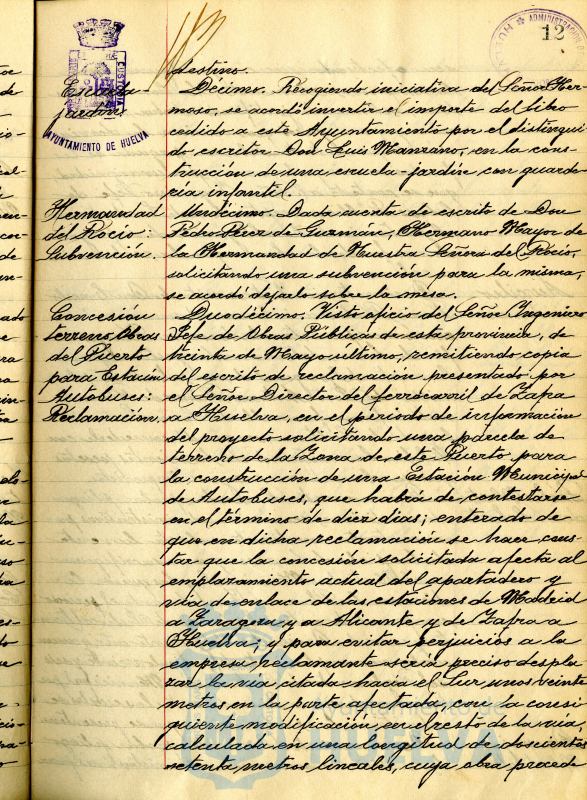 12
ADMINISTRACION
CUSTODIA
AYUNTAMIENTO DE HUELVA
Escuela-
jardín.
destino.
Décimo. Recogiendo iniciativa del Señor Her-
moso, se acordó invertir el importe del libro
cedido a este Ayuntamiento por el distingui-
do escritor Don Luis Manzano, en la cons-
trucción de una escuela-jardín con guarde-
ría infantil.
Hermandad
del Rocío:
Subvención.
Undécimo. Dada cuenta de escrito de Don
Pedro Pérez de Guzmán, Hermano Mayor de
la Hermandad de Nuestra Señora del Rocío,
solicitando una subvención para la misma,
se acordó dejarlo sobre la mesa.
Concesión
terreno Obras
del Puerto
para Estación
Autobuses:
Reclamación.
Duodécimo. Visto oficio del Señor Ingeniero
Jefe de Obras Públicas de esta provincia, de
treinta de Mayo último, remitiendo copia
del escrito de reclamación presentado por
el Señor Director del ferrocarril de Zafra
a Huelva, en el periodo de información
del proyecto solicitando una parcela de
terreno de la Zona de este Puerto para
la construcción de una Estación Municipal
de Autobuses, que habrá de contestarse
en el término de diez días; enterado de
que en dicha reclamación se hace cons-
tar que la concesión solicitada afecta al
emplazamiento actual del apartadero y
vía de enlace de las estaciones de Madrid
a Zaragoza y a Alicante y de Zafra a
Huelva; y para evitar perjuicios a la
empresa reclamante sería preciso despla-
zar la vía citada hacia el Sur unos veinte
metros en la parte afectada, con la consi-
guiente modificación en el resto de la vía,
calculada en una longitud de doscientos
setenta metros lineales, cuya obra procede
HUELVA